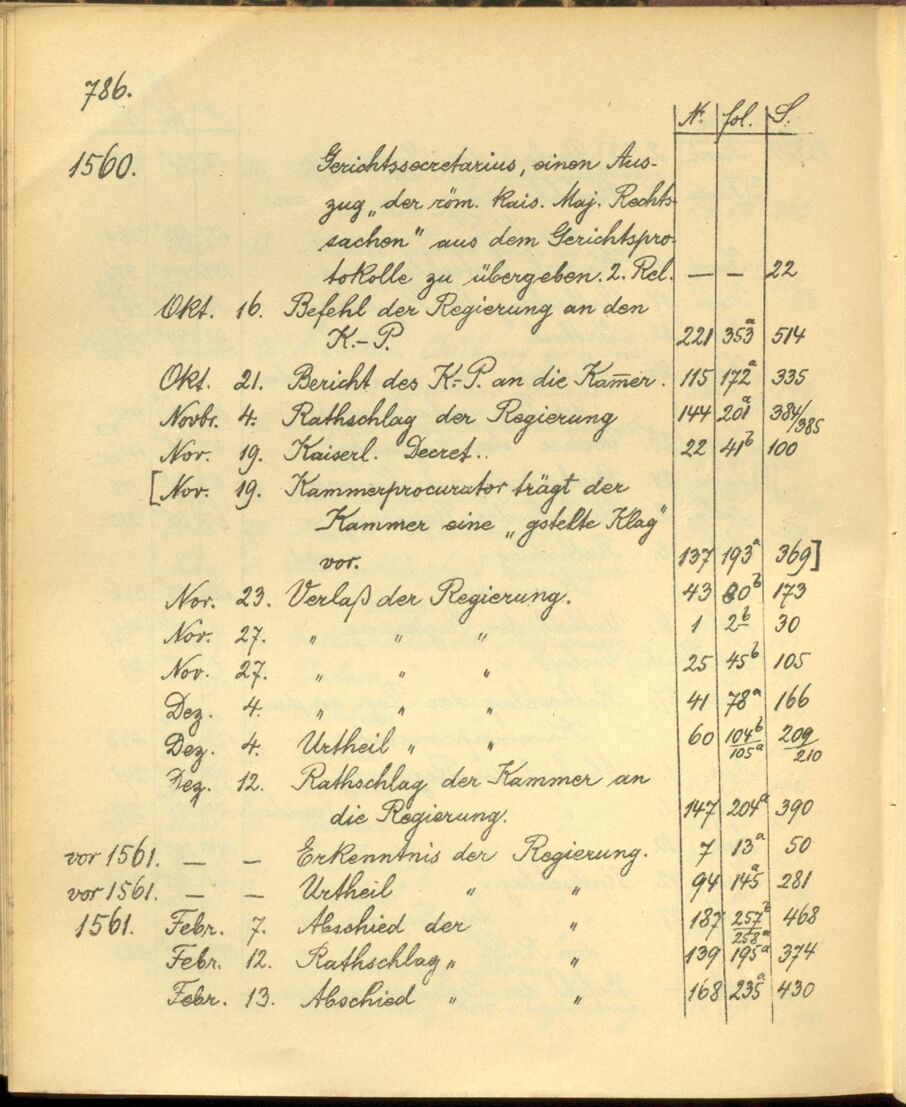 786.
Nr. fol. S.
1560. Gerichtssecretarius, einen Aus-
zug „der röm. Kais. Maj. Rechts-
sachen" aus dem Gerichtspro-
tokolle zu übergeben. 2. Rel. — — 22
Okt. 16. Befehl der Regierung an den
K.-P. 221 353a 514
Okt. 21. Bericht des K.-P. an die Kam̄er. 115 172a 335
Novbr. 4. Rathschlag der Regierung 144 201a 384/385
Nov. 19. Kaiserl. Decret.. 22 41b 100
[Nov. 19. Kammerprocurator trägt der
Kammer eine „gstelte Klag"
vor. 137 193a 369]
Nov. 23. Verlaß der Regierung. 43 80b 173
Nov. 27. „ „ „ 1 2b 30
Nov. 27. „ „ „ 25 45b 105
Dez. 4. „ „ „ 41 78a 166
Dez. 4. Urtheil „ „ 60 104b/105a 209/210
Dez. 12. Rathschlag der Kammer an
die Regierung. 147 204a 390
vor 1561. — — Erkenntnis der Regierung. 7 13a 50
vor 1561. — — Urtheil „ „ 94 145a 281
1561. Febr. 7. Abschied der „ 187 257b/258a 468
Febr. 12. Rathschlag „ „ 139 195a 374
Febr. 13. Abschied „ „ 168 235a 430